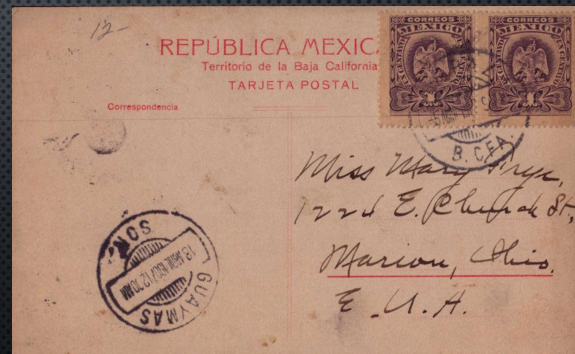 12-
REPÚBLICA MEXIC
Territorio de la Baja California
TARJETA POSTAL
Correspondencia
CORREOS
MEXICO
1
CORREOS
MEXICO
1
B. CFA.
Miss Mary
E. Church St,
Marion, Ohio.
E. U. A.
GUAYMAS
SON.